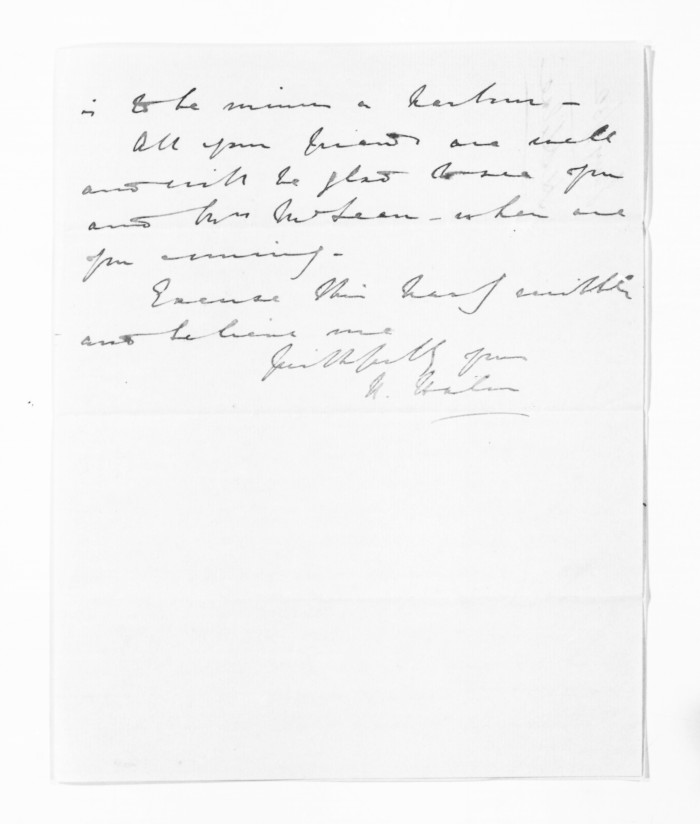 is to be minus a harbour -
All your friends are well
and will be glad to see you
and Mrs McLean - when are
you coming -
Excuse this hasty
and believe me
faithfully yours